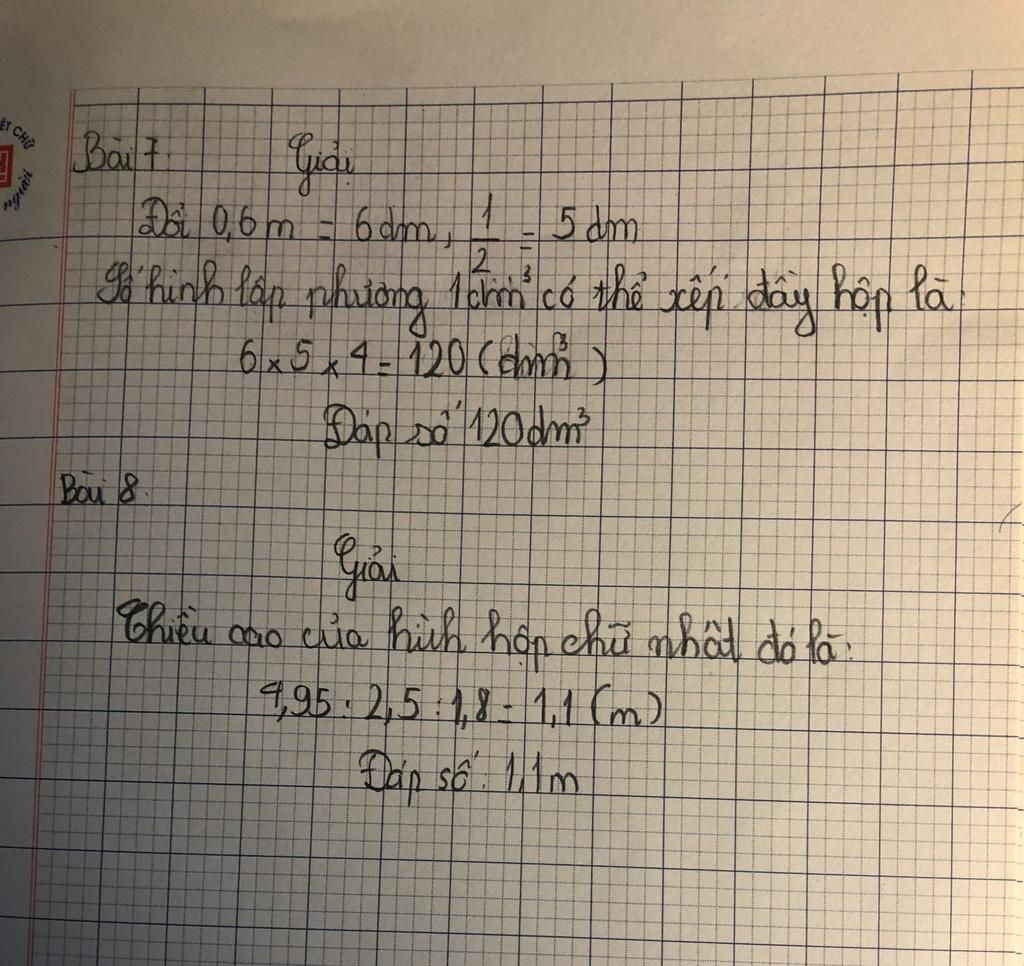 ẾT CHỮ
người
Bài 7. Giải
Đổi 0,6 m = 6 dm, 1/2 = 5 dm
Số hình lập phương 1dm³ có thể xếp đầy hộp là:
6 x 5 x 4 = 120 (dm³)
Đáp số 120dm³
Bài 8.
Giải
Chiều cao của hình hộp chữ nhật đó là:
4,95 : 2,5 : 1,8 = 1,1 (m)
Đáp số: 1,1m